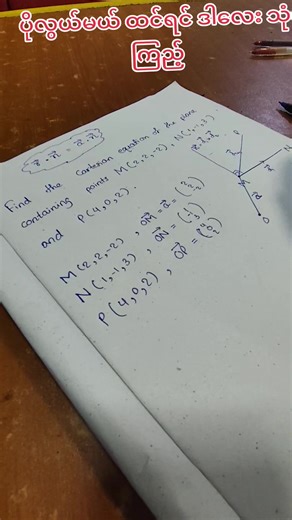 ပိုလွယ်မယ် ထင်ရင် ဒါလေး သုံး
ကြည့်
r⃗ · n⃗ = a⃗ · n⃗
Find the Cartesian equation of the plane
containing points M(2,2,-2), N(1,-1,3)
and P(4,0,2).
M(2,2,-2), OM⃗ = a⃗ = (2 2 -2)
N(1,-1,3), ON⃗ = (1 -1 3)
P(4,0,2), OP⃗ = (4 0 2)
N
M
O